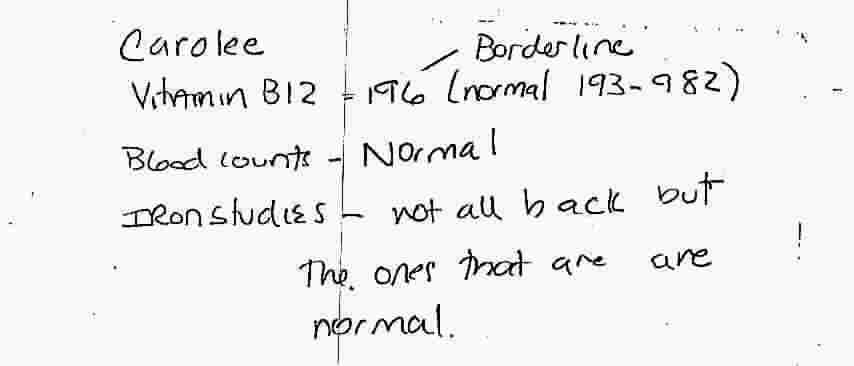 Carolee
Borderline
Vitamin B12 - 196 (normal 193-982)
Blood counts - Normal
IRon studies - not all back but
The ones that are are
normal.